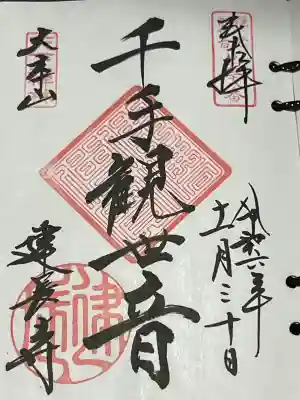 奉拝
令和六年
十一月三十日
千手観世音
大本山
建長寺